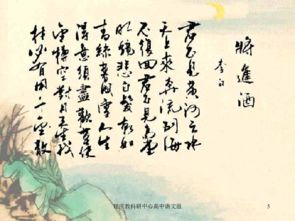 將進酒
李白
君不見黄河之水
天上來奔流到海
不復回君不見高堂
明鏡悲白髮朝如
青絲暮成雪人生
得意須盡歡莫使
金樽空對月天生我
材必有用千金散
教科研中心高中语文组
5